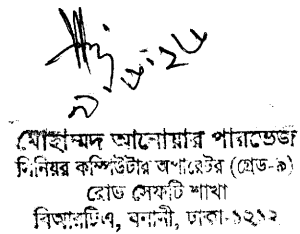 মোহাম্মদ আনোয়ার পারভেজ
সিনিয়র কম্পিউটার অপারেটর (গ্রেড-৯)
রোড সেফটি শাখা
বিআরটিএ, বনানী, ঢাকা-১২১২